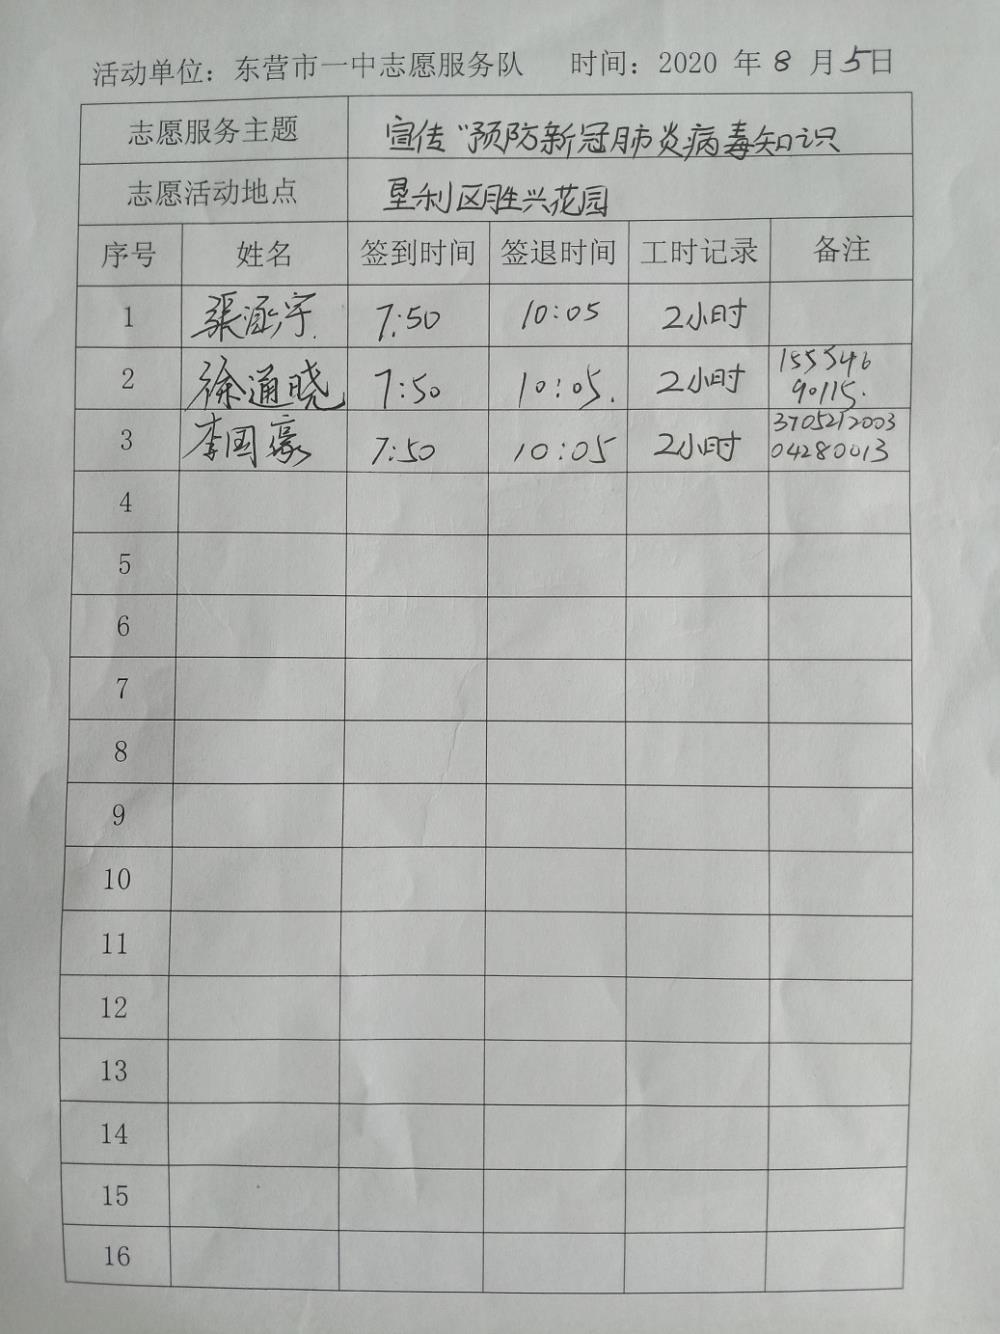 活动单位：东营市一中志愿服务队 时间：2020 年 8 月 5日
志愿服务主题 宣传“预防新冠肺炎病毒知识
志愿活动地点 垦利区胜兴花园
序号 姓名 签到时间 签退时间 工时记录 备注
1 张涵宇 7:50 10:05 2小时
2 徐通晓 7:50 10:05. 2小时 155546
90115.
3 李国豪 7:50 10:05 2小时 3705212003
04280013
4
5
6
7
8
9
10
11
12
13
14
15
16